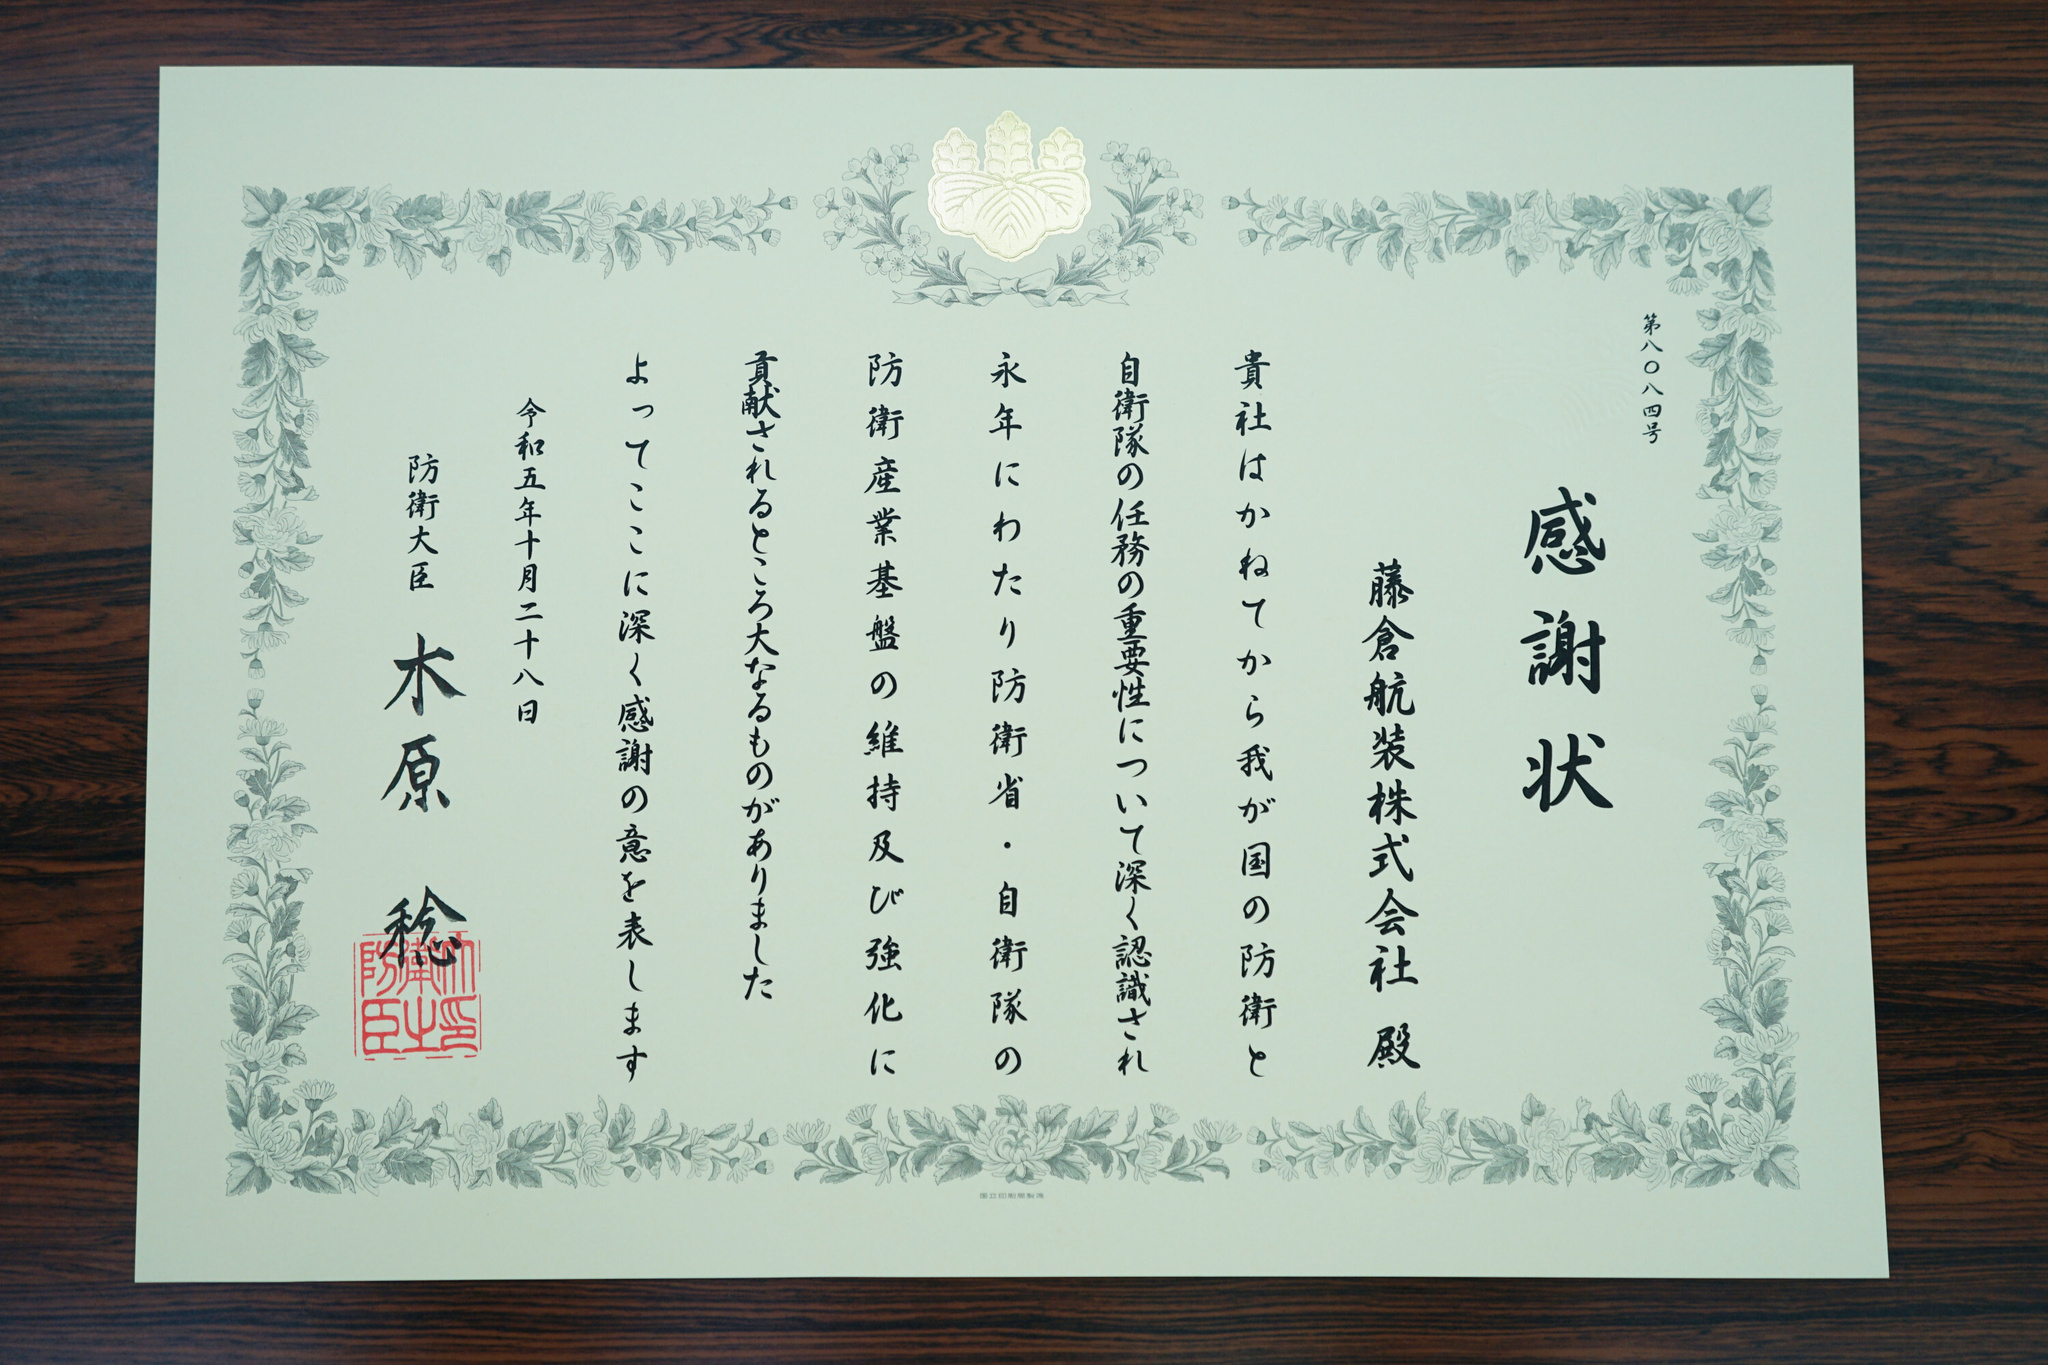 第八〇八四号
感謝状
藤倉航装株式会社 殿
貴社はかねてから我が国の防衛と
自衛隊の任務の重要性について深く認識され
永年にわたり防衛省・自衛隊の
防衛産業基盤の維持及び強化に
貢献されるところ大なるものがありました
よってここに深く感謝の意を表します
令和五年十月二十八日
防衛大臣 木原 稔
防衛大臣之印
国立印刷局製造